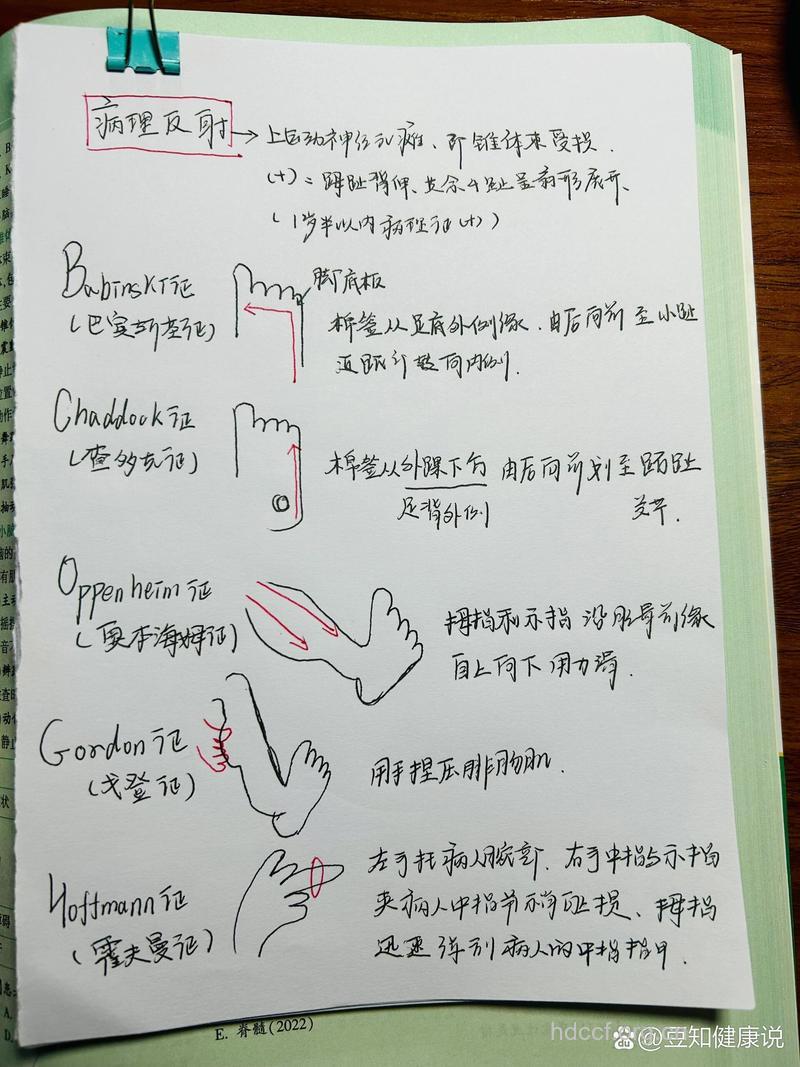 病理反射 → 上运动神经元瘫、即锥体束受损.
(+) = 踇趾背伸、其余4趾呈扇形展开、
(1岁半以内病理征(+))
Babinski征
(巴宾斯基征)
脚底板
棉签从足底外侧缘.由后向前至小趾
近跟部转向内侧.
Chaddock征
(查多克征)
棉签从外踝下方 由后向前划至跖趾
足背外侧
关节.
Oppenheim征
(奥本海姆征)
拇指和示指沿胫骨前缘
自上向下用力滑.
Gordon征
(戈登征)
用手捏压腓肠肌.
Hoffmann征
(霍夫曼征)
左手托病人腕部.右手中指与示指
夹病人中指节稍
拇指
迅速弹刮病人的中指指甲.
E. 脊髓(2022)
hdccf
@豆知健康说